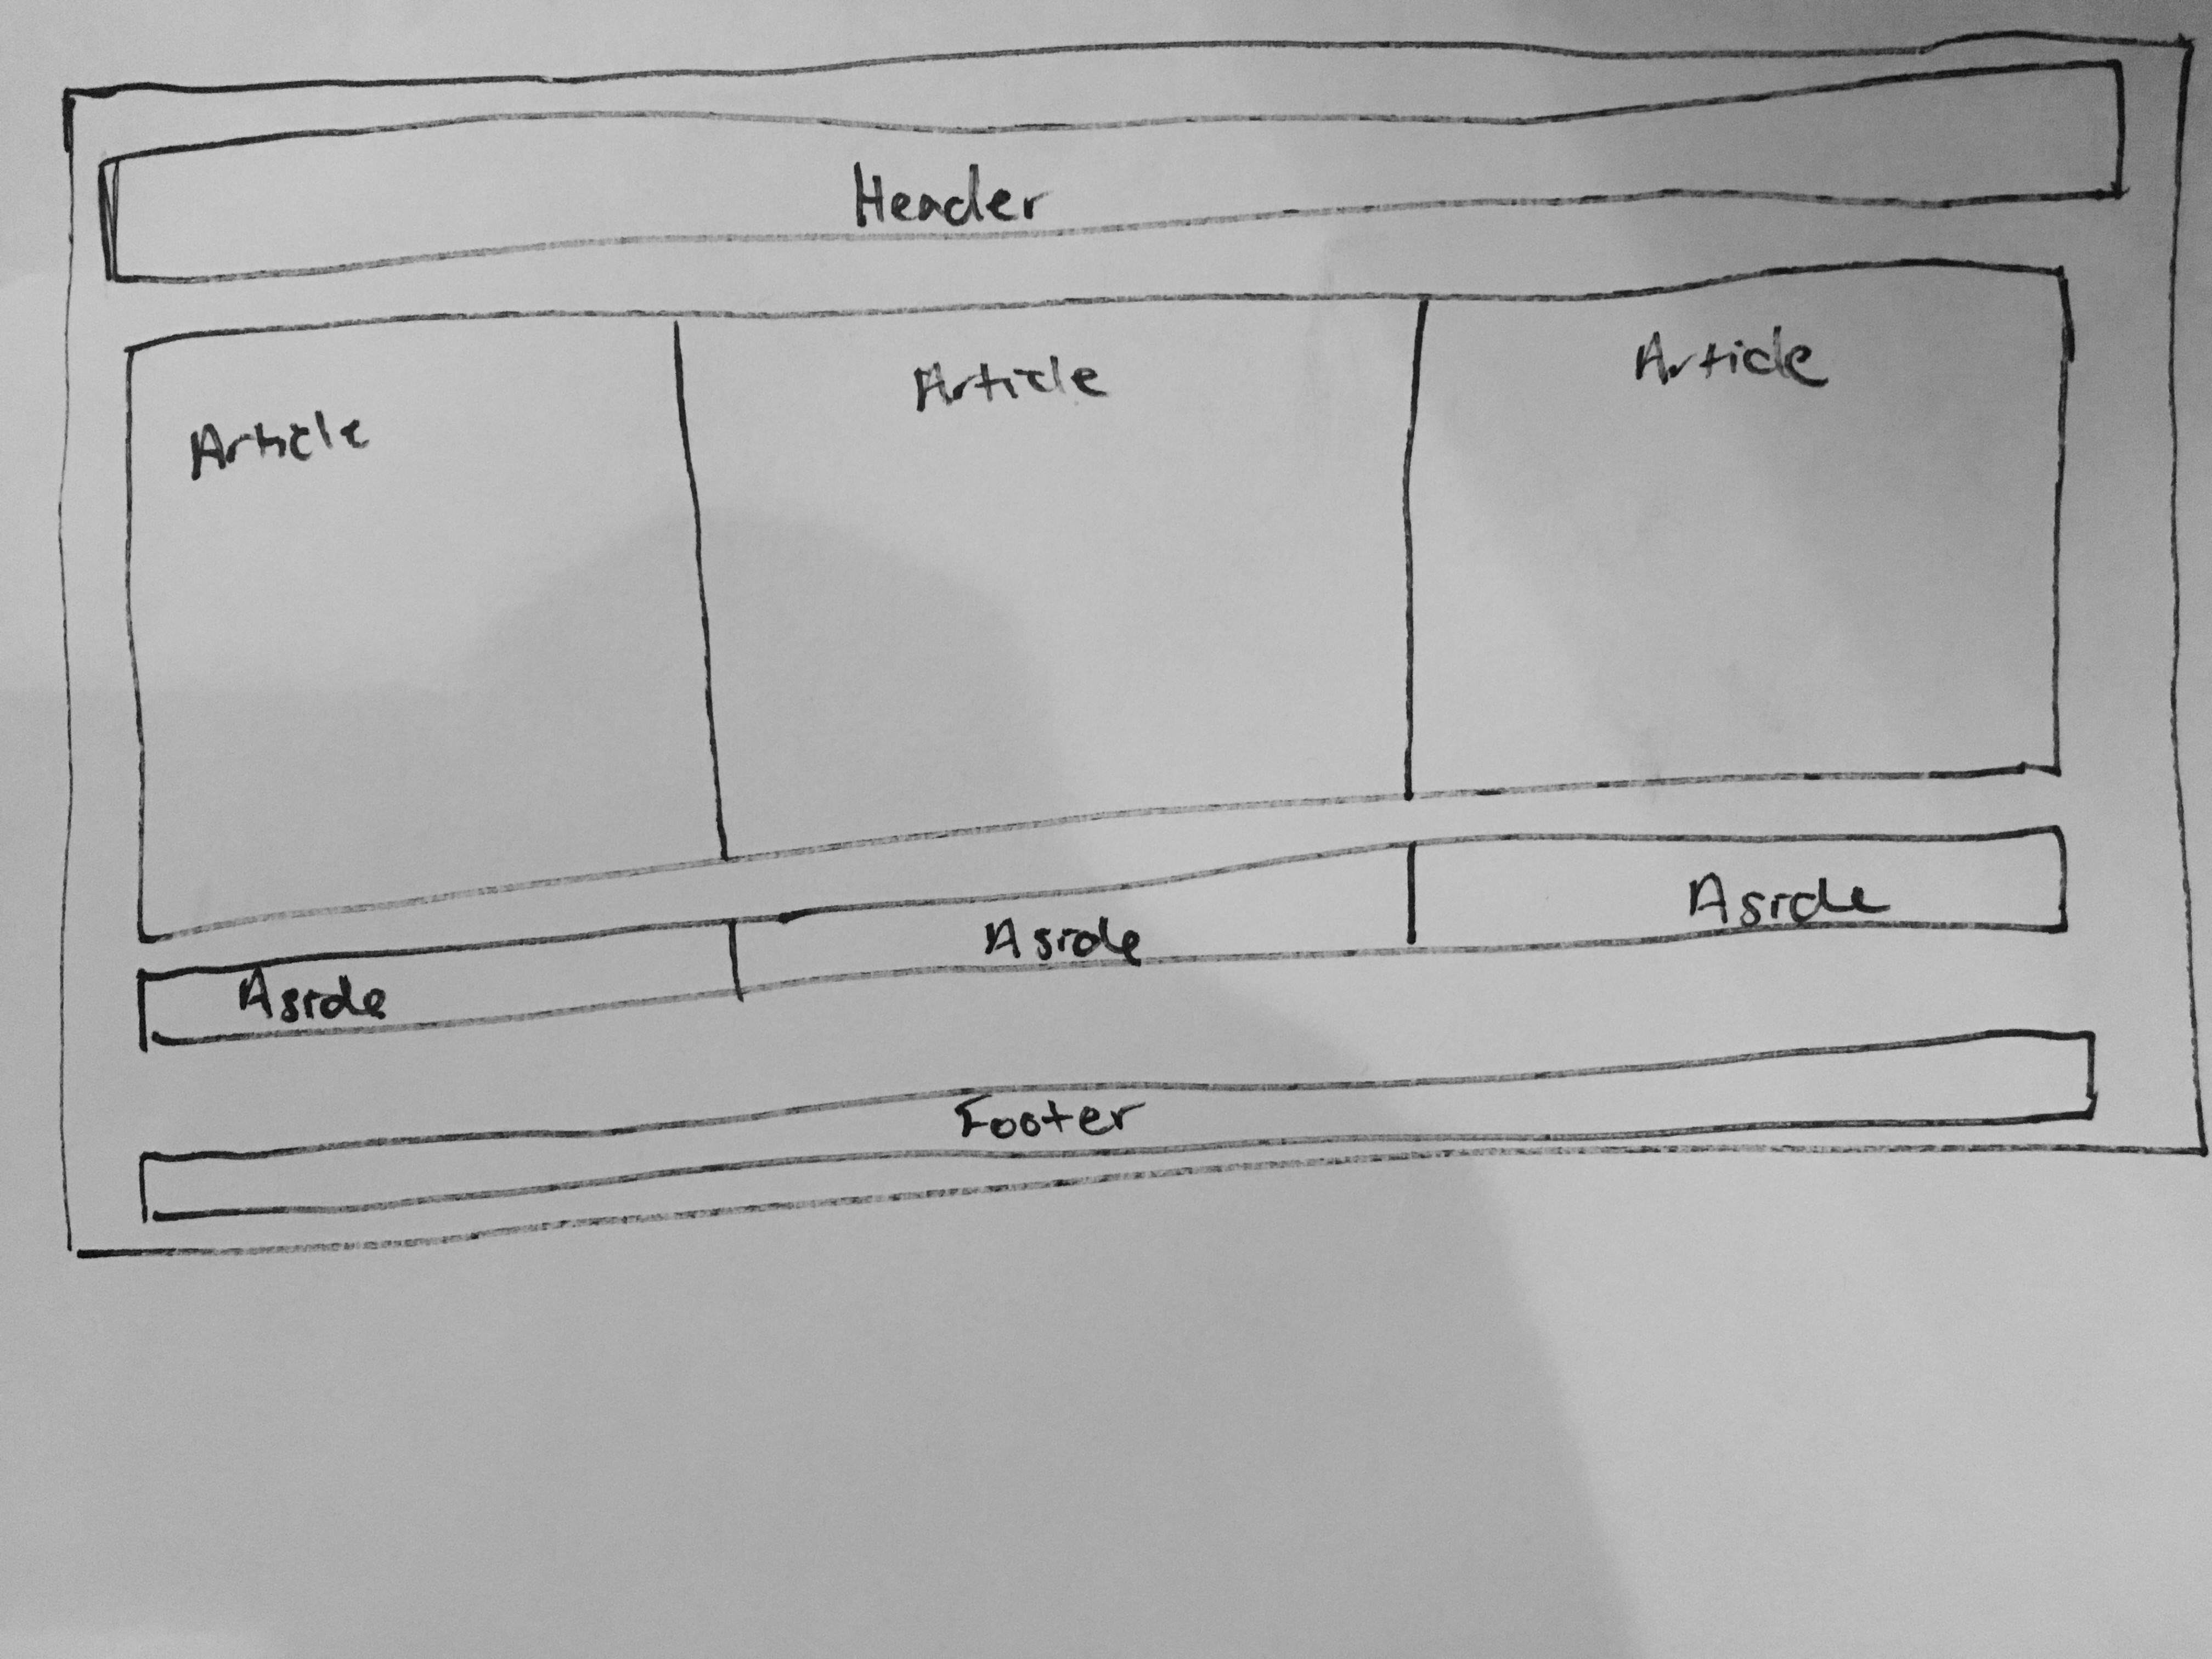 Header
Article
Article
Article
Aside
Aside
Aside
Footer